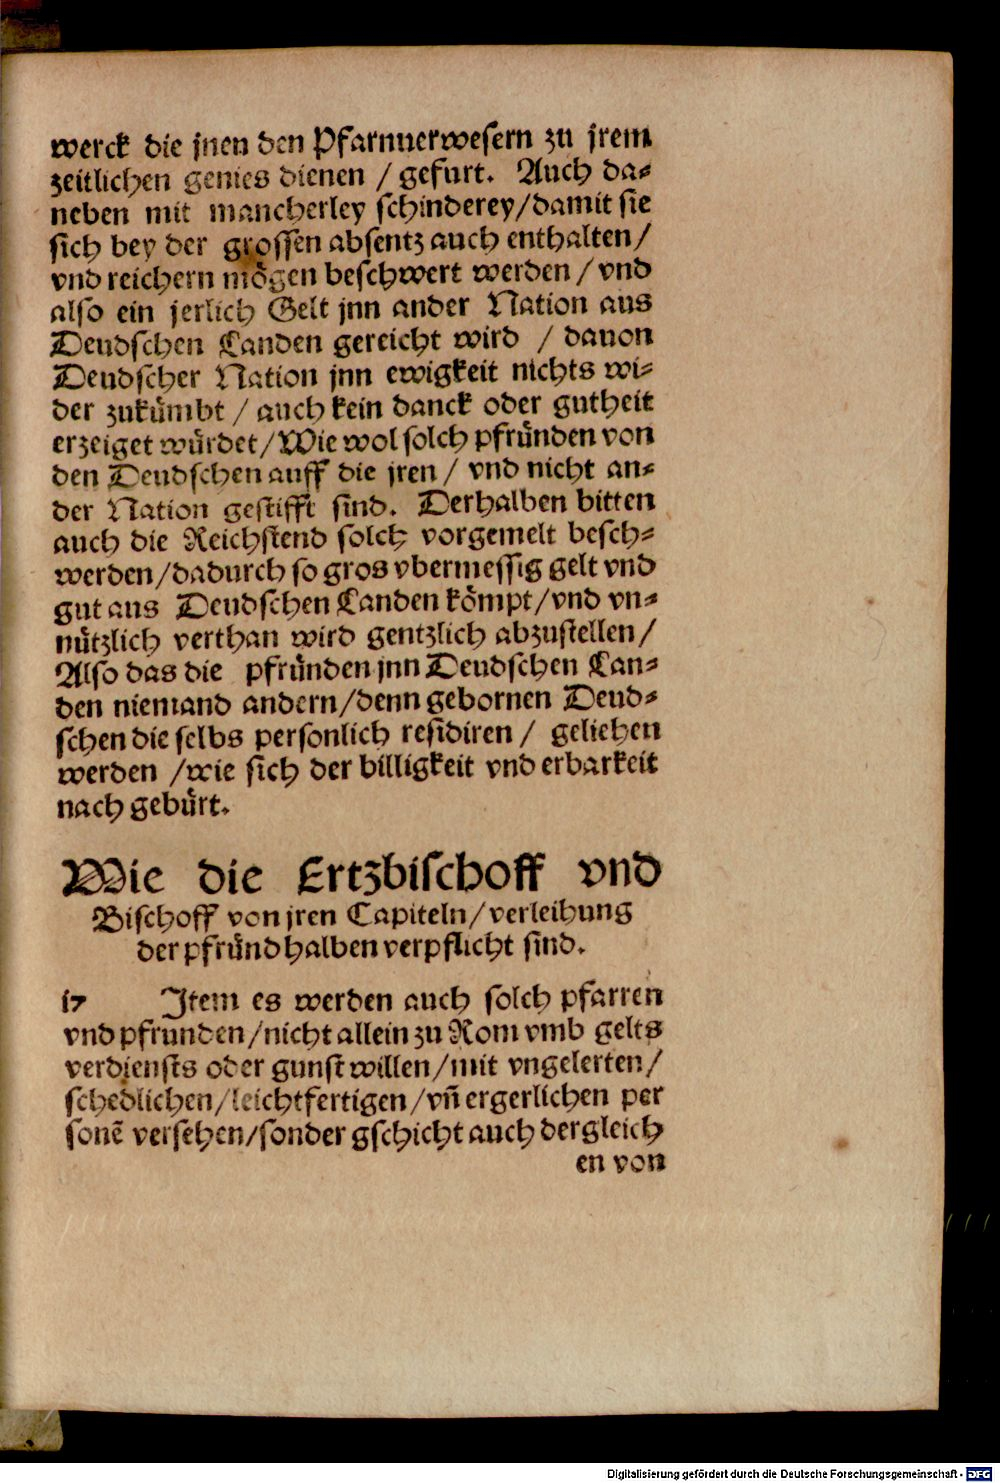 werck die jnen den Pfarnuerwesern zu jrem
zeitlichen genies dienen / gefurt. Auch da⸗
neben mit mancherley schinderey/damit sie
sich bey der grossen absentz auch enthalten/
vnd reichern moͤgen beschwert werden / vnd
also ein jerlich Gelt jnn ander Nation aus
Deudschen Landen gereicht wird / dauon
Deudscher Nation jnn ewigkeit nichts wi⸗
der zukuͤmbt / auch kein danck oder gutheit
erzeiget wuͤrdet/Wie wol solch pfruͤnden von
den Deudschen auff die jren / vnd nicht an⸗
der Nation gestifft sind. Derhalben bitten
auch die Reichstend solch vorgemelt besch⸗
werden/dadurch so gros vbermessig gelt vnd
gut aus Deudschen Landen koͤmpt/vnd vn⸗
nuͤtzlich verthan wird gentzlich abzustellen/
Also das die pfruͤnden jnn Deudschen Lan⸗
den niemand andern/denn gebornen Deud⸗
schen die selbs personlich residiren / geliehen
werden /wie sich der billigkeit vnd erbarkeit
nach gebuͤrt.
Wie die Ertzbischoff vnd
Bischoff von jren Capiteln/verleihung
der pfruͤnd halben verpflicht sind.
17 Item es werden auch solch pfarren
vnd pfrunden/nicht allein zu Rom vmb gelts
verdiensts oder gunst willen/mit vngelerten/
schedlichen/leichtfertigen/vñ ergerlichen per
sonē versehen/sonder gschicht auch dergleich
en von
Digitalisierung gefördert durch die Deutsche Forschungsgemeinschaft - DFG